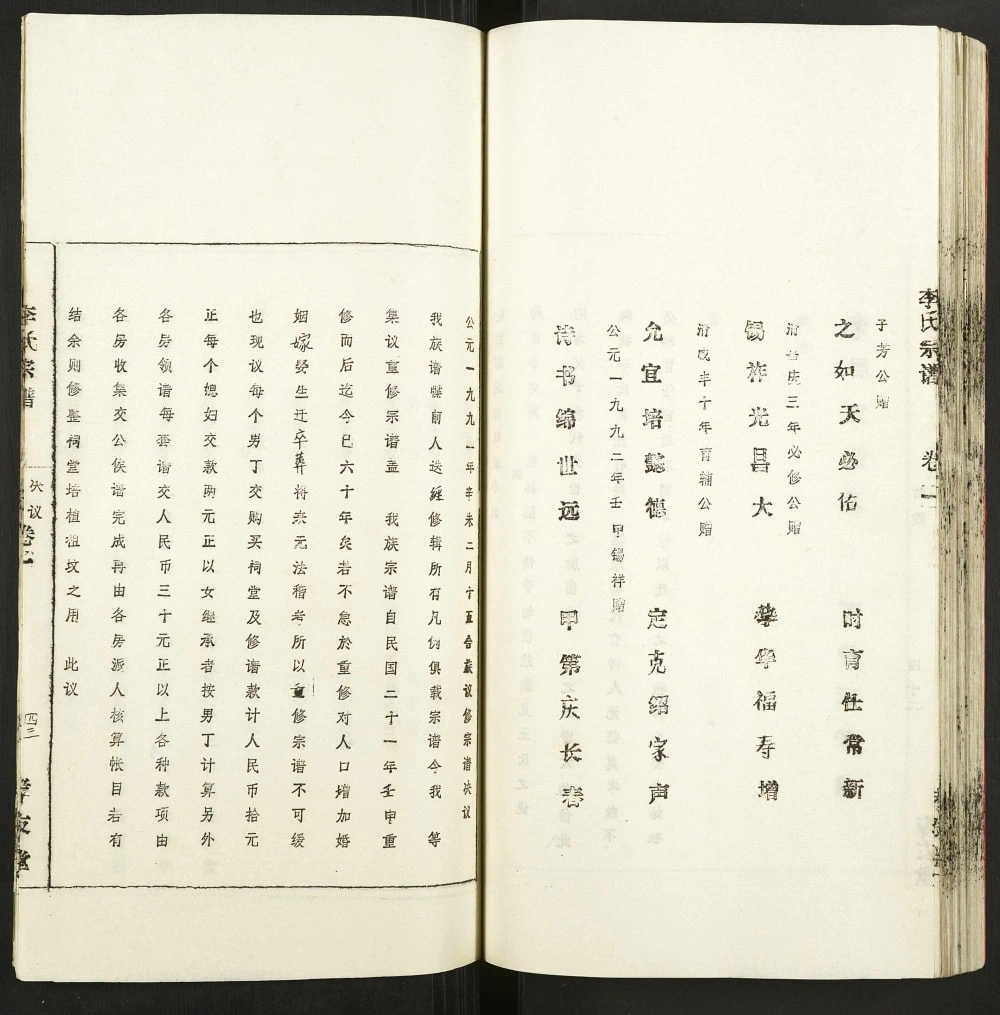 李氏宗谱 卷一
子芳公赠
之如天必佑 时育仕常新
清嘉庆三年必修公赠
锡祚光昌大 华福寿增
清咸丰十年育辅公赠
允宜培懿德 定克绍家声
公元一九九二年壬申锡祥赠
诗书绵世远 甲第庆长春
公元一九九一年辛未二月十五合族议修宗谱决议
我族谱牒前人迭经修辑所有凡例俱载宗谱今我 等
集议重修宗谱盖 我族宗谱自民国二十一年壬申重
修而后迄今已六十年矣若不急於重修对人口增加婚
姻嫁娶生迁卒葬将来无法稽考所以重修宗谱不可缓
也现议每个男丁交购买祠堂及修谱款计人民币拾元
正每个媳妇交款两元正以女继承者按男丁计算另外
各房领谱每套谱交人民币三十元正以上各种款项由
各房收集交公俟谱完成再由各房派人核算帐目若有
结余则修整祠堂培植祖坟之用 此议
李氏宗谱 决议 卷 四三 孝友堂